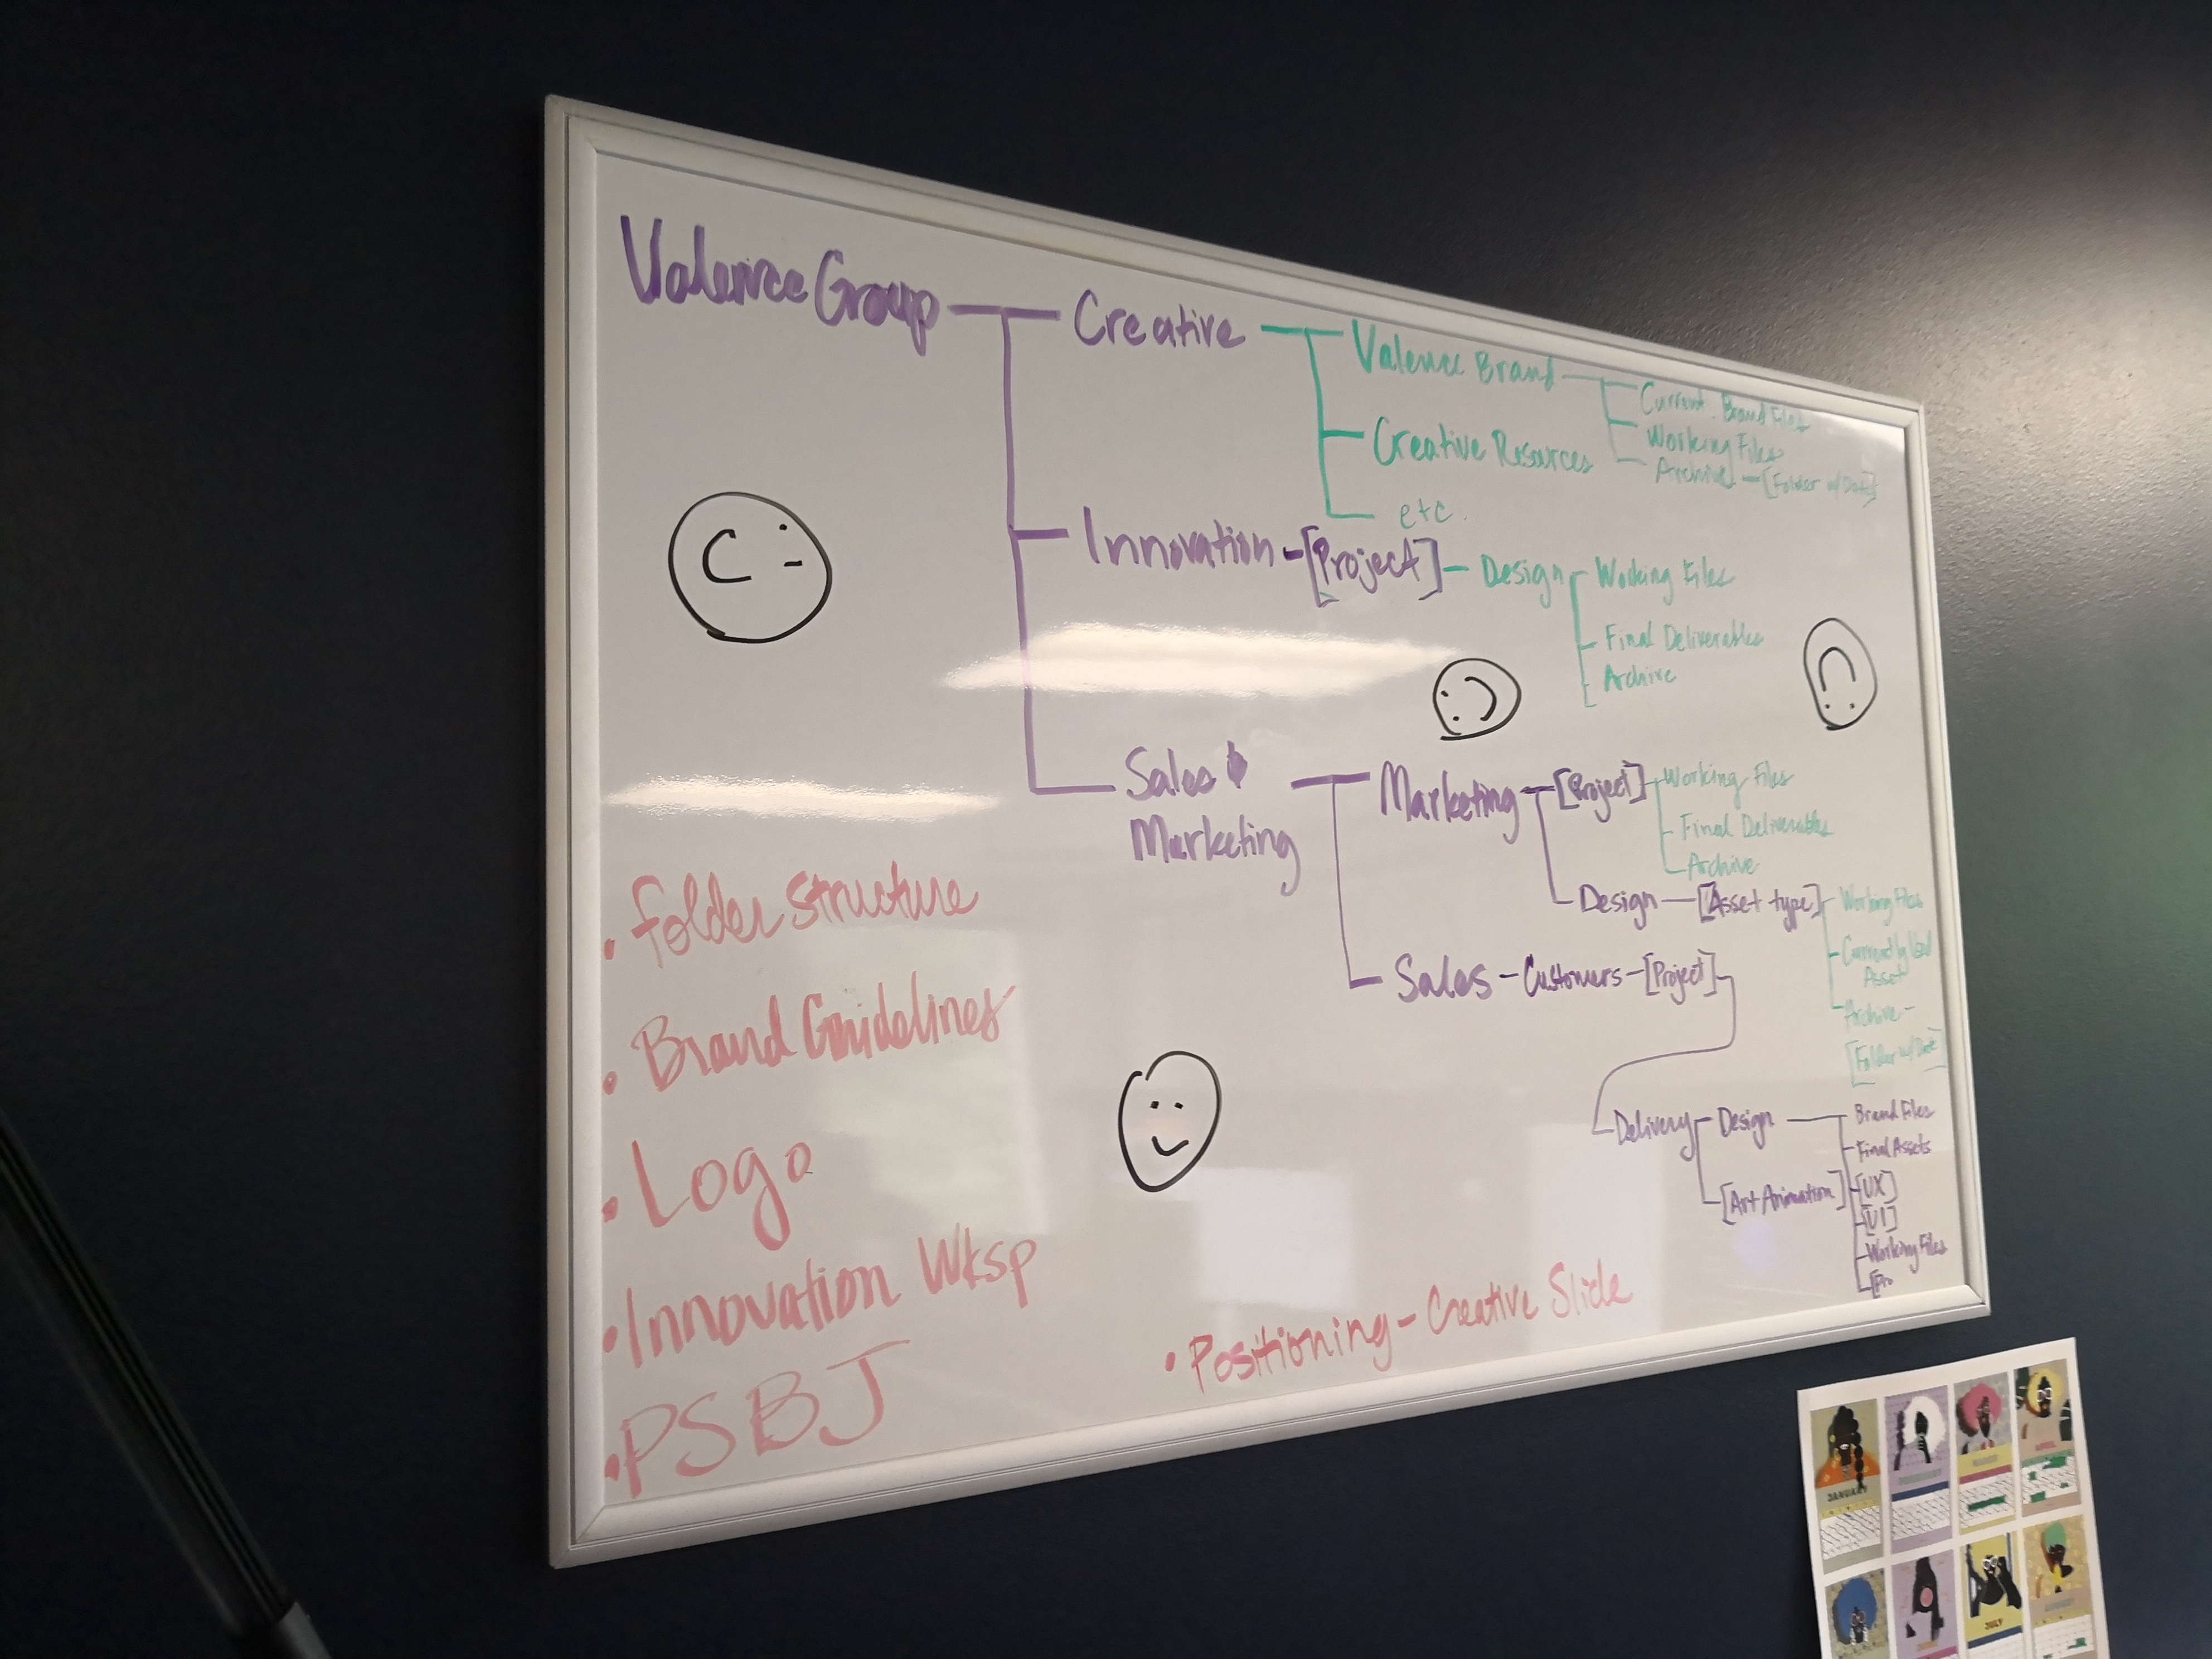 Valence Group
Creative
Valence Brand
Current Brand Files
Working Files
Archive - [Folder w/ Date]
Creative Resources
etc.
Innovation - [Project] - Design
Working Files
Final Deliverables
Archive
Sales &
Marketing
Marketing
[Project]
Working Files
Final Deliverables
Archive
Design - [Asset type]
Working Files
Currently Used
Asset
Archive -
[Folder w/ Date]
Sales - Customers - [Project]
Delivery
Design
Brand Files
Final Assets
[Art Animation]
[UX]
[UI]
Working Files
[Pro
• Folder Structure
• Brand Guidelines
• Logo
• Innovation Wksp
• PSBJ
• Positioning - Creative Slide
JANUARY
JULY